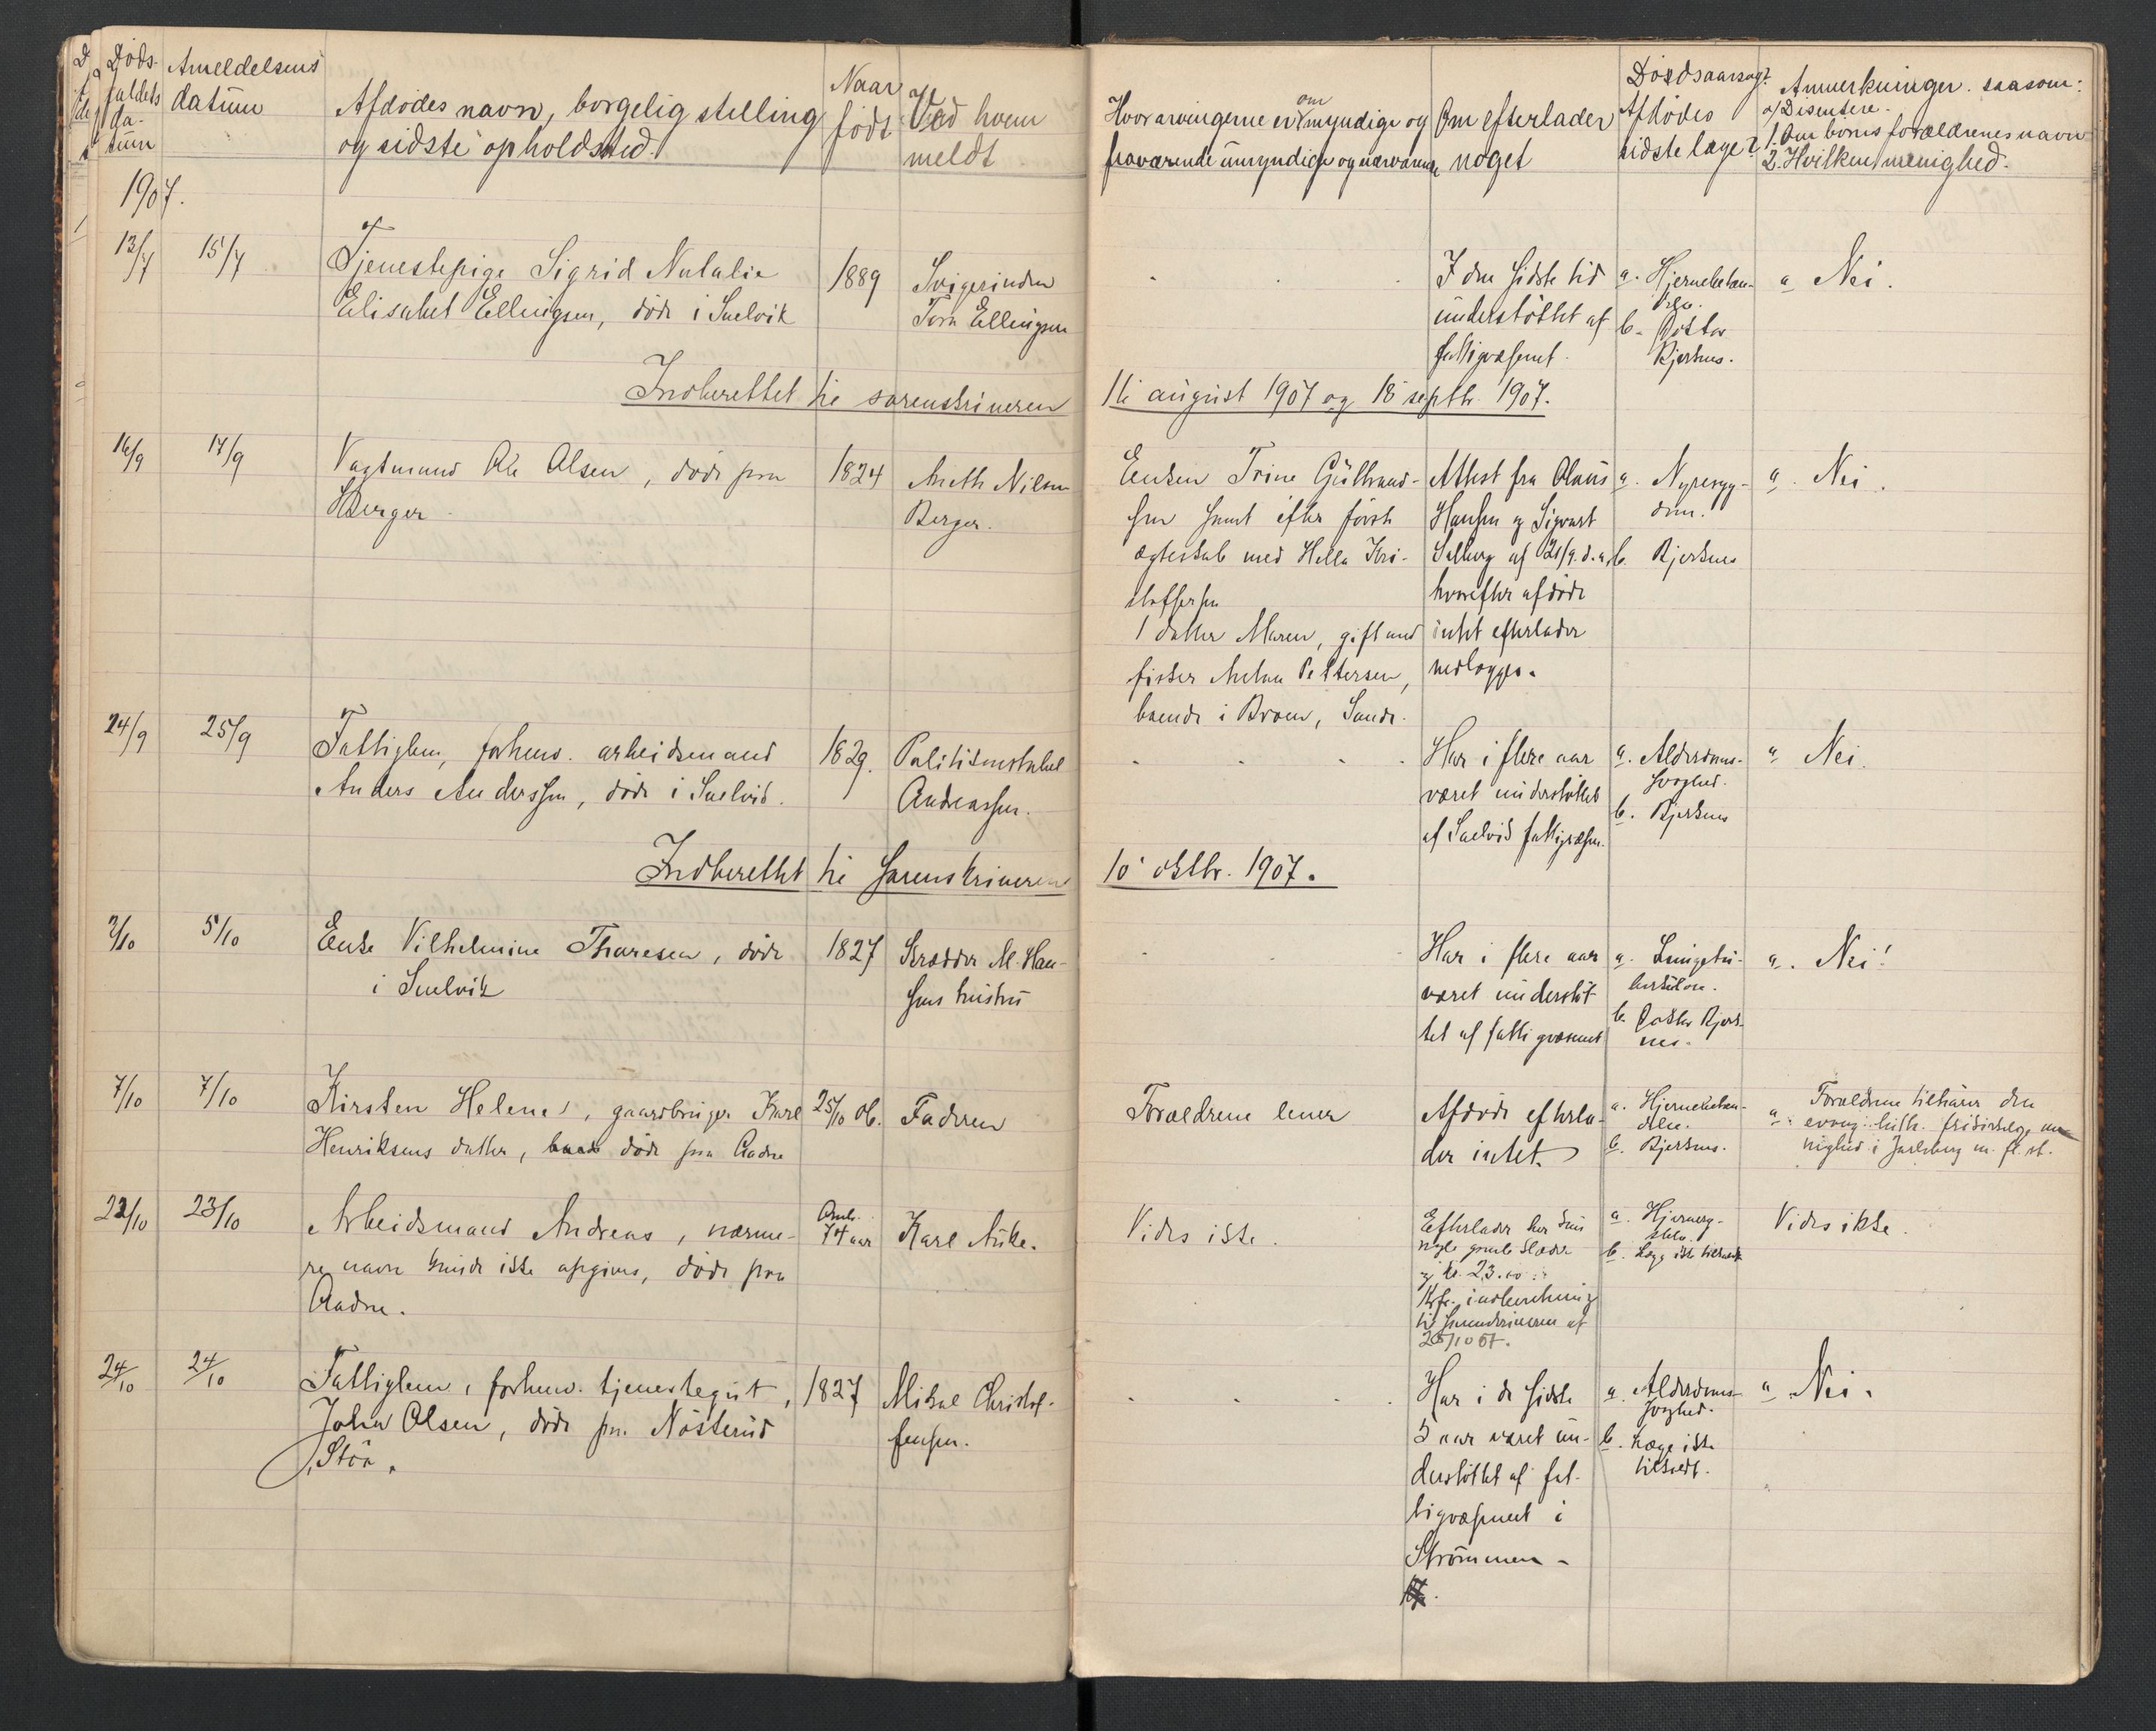 Døds-
faldets
da-
tum
Anmeldelsens
datum
Afdødes navn, borgelig stilling
og sidste opholdsted.
Naar
født
Ved hvem
meldt
Hvor arvingerne er, om myndige og
fraværende umyndige og nærværende
Om efterlader
noget
Dødsaarsag?
Afdødes
sidste læge?
Anmerkninger. saasom:
a/ Disentere.
1. Om børns forældrenes navn
2. Hvilken menighed.
1907.
13/7
15/7
Tjenestepige Sigrid Natalie
Elisabet Ellingsen, døde i Svelvik
1889
Svigerinden
Tora Ellingsen
I den sidste tid
understøttet af
fattigvæsenet.
a. Hjernebetæn-
delse.
b. Doktor
Bjerknes.
a Nei.
Indberettet til sorenskriveren
16 august 1907 og 18 septbr. 1907.
16/9
17/9
Vagtmand Ole Olsen, døde paa
Berger.
1824
Aneth Nilsen
Berger.
Enken Trine Gulbrand-
sen samt efter første
ægteskab med Hella Kri-
stoffersen
1 datter Maren, gift med
fisker Anton Pettersen,
boende i Broen, Sande.
Attest fra Olaus
Hansen og Sigvart
Solberg af 21/9. d.a,
hvorefter afdøde
intet efterlader
vedlægges.
a. Nyresyg-
dom.
b. Bjerknes
a. Nei.
24/9
25/9
Fattiglem, forhenv. arbeidsmand
Anders Anderssen, døde i Svelvik.
1829.
Politikonstabel
Andreassen.
Har i flere aar
været understøttet
af Svelvik fattigvæsen.
a. Alderdoms-
svaghed.
b. Bjerknes
a Nei.
Indberettet til sorenskriveren
10 oktbr. 1907.
2/10
5/10
Enke Vilhelmine Thoresen, døde
i Svelvik
1827
Skrædder M. Han-
sens hustru
Har i flere aar
været understøt
tet af fattigvæsenet
a. Lungetu-
berkulose.
b. Doktor Bjerk-
nes.
a. Nei!
7/10
7/10
Kirsten Helene, gaardbruger Karl
Henriksens datter, døde paa Aadne
25/10 06.
Faderen
Forældrene lever
Afdøde efterla-
der intet.
a. Hjernebetæn-
delse.
b. Bjerknes.
a. Forældrene tilhører den
evang. luth. frikirkelige me
nighed i Jarlsberg m. fl. st.
22/10
23/10
Arbeidsmand Andreas, nærme-
re navn kunde ikke opgives, døde paa
Aadne.
Omtr.
74 aar
Karl Auke.
Vides ikke.
Efterlader kun
nogle gamle klæder
og kr. 23.00
Kfr. indberetning
til sorenskriveren af
25/10 07.
a. Hjerneslag-
b. Læge ikke tilkaldt
Vides ikke.
24/10
24/10
Fattiglem, forhenv. tjenestegut,
Johan Olsen, døde paa Nøsterud
i Støa.
1827
Mikal Christof-
fersen.
Har i de sidste
5 aar været un-
derstøttet af fat-
tigvæsenet i
Strømmen-
a. Alderdoms-
svaghed.
b. Læge ikke
tilkaldt.
a Nei.